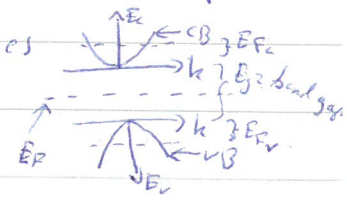 c)
Ec
CB } EFc
k } Eg = band gap
EF
k } EFv
VB
Ev